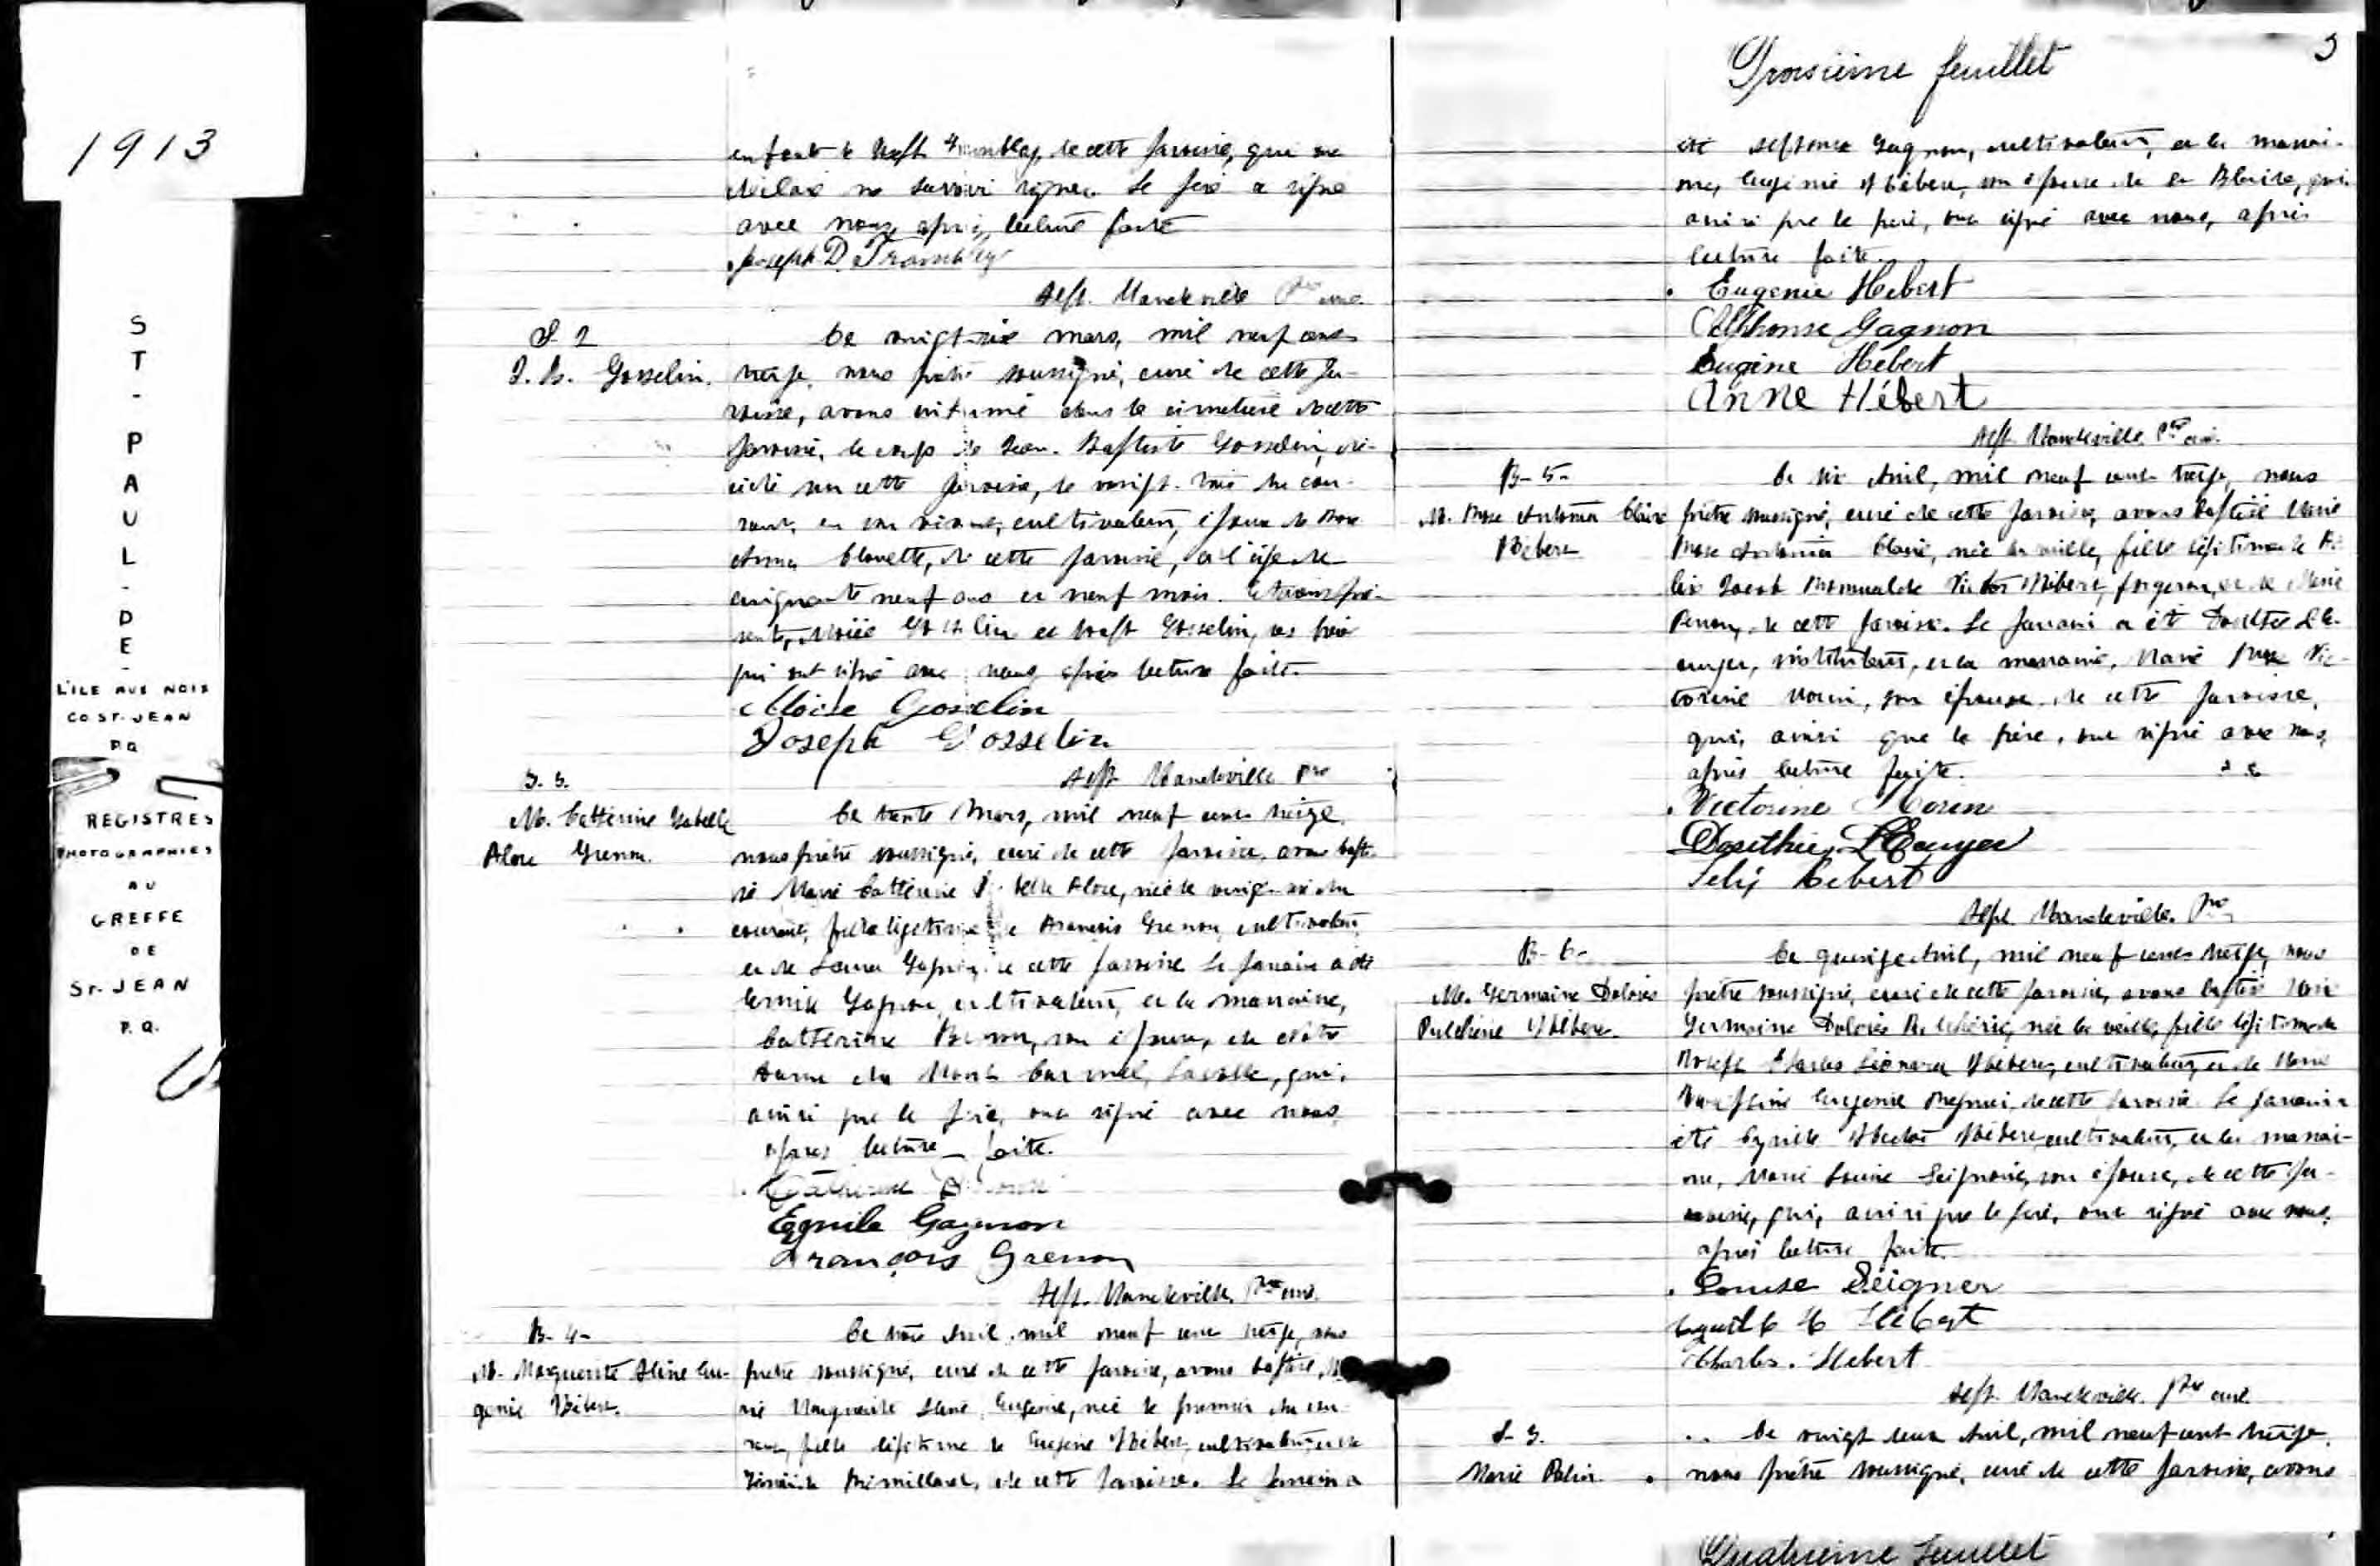 1913
ST-PAUL-DE-
L'ILE AUX NOIX
CO ST-JEAN
P.Q.
REGISTRES
PHOTOGRAPHIES
AU
GREFFE
DE
ST-JEAN
P.Q.
enfant de Joseph Tremblay, de cette paroisse, qui ne
déclare ne savoir signer. Le père a signé
avec nous, après lecture faite
Joseph D. Tremblay
Alph. Mandeville Ptre curé
S 2
J. B. Gosselin.
Ce vingt-six mars, mil neuf cent
treize, nous prêtre soussigné, curé de cette pa-
roisse, avons inhumé dans le cimetière de cette
paroisse, le corps de Jean-Baptiste Gosselin, dé-
cédé en cette paroisse, le vingt-trois du cou-
rant, en son vivant, cultivateur, époux de
Anna, de cette paroisse, à l'âge de
cinquante neuf ans et neuf mois. Etaient pré-
sents, Moïse Gosselin et Joseph Gosselin, ses
qui ont signé avec nous après lecture faite.
Moïse Gosselin
Joseph Gosselin
Alph Mandeville Ptre
B. 3.
M. Catherine Isabelle
Alore Grenon.
Ce trente Mars, mil neuf cent treize,
nous prêtre soussigné, curé de cette paroisse, avons bapti-
sé Marie Catherine Isabelle Alore, née le vingt-six du
courant, fille légitime de François Grenon, cultivateur,
et de Laura Gagnon, de cette paroisse. Le parrain a été
Emile Gagnon, cultivateur, et la marraine,
Catherine, son épouse, de Notre
Dame du Mont Carmel, Lacolle, qui,
ainsi que le père, ont signé avec nous,
après lecture faite.
Catherine
Emile Gagnon
François Grenon
Alph. Mandeville, Ptre curé.
B-4-
M. Marguerite Aline Eu-
génie Hébert.
Ce trois Avril, mil neuf cent treize, nous
prêtre soussigné, curé de cette paroisse, avons baptisé, Ma-
rie Marguerite Aline Eugénie, née le premier du cou-
rant, fille légitime de Eugène Hébert, cultivateur, et de
Rémillard, de cette paroisse. Le parrain a
Troisième feuillet
3
été Alphonse Gagnon, cultivateur, et la marrai-
ne, Eugénie Hébert, son épouse, de, qui
ainsi que le père, ont signé avec nous, après
lecture faite.
Eugenie Hebert
Alphonse Gagnon
Eugène Hebert
Anne Hébert
Alph. Mandeville Ptre curé.
B-5-
M. Rose Antonia Claire
Hébert
Ce six Avril, mil neuf cent treize, nous
prêtre soussigné, curé de cette paroisse, avons baptisé Marie
Rose Antonia Claire, née la veille, fille légitime de Fé-
lix Jacob Romuald Victor Hébert, forgeron, et de Marie
, de cette paroisse. Le parrain a été Dosithée L'E-
cuyer, instituteur, et la marraine, Marie Rose Vic-
torine Morin, son épouse, de cette paroisse,
qui, ainsi que le père, ont signé avec nous,
après lecture faite.
Victorine Morin
Dosithée L'Ecuyer
Felix Hebert
Alph Mandeville. Ptre
B-6-
M. Germaine Dolorès
Pulchérie Hébert
Ce quinze Avril, mil neuf cent treize, nous
prêtre soussigné, curé de cette paroisse, avons baptisé Marie
Germaine Dolorès Pulchérie, née la veille, fille légitime de
Joseph Charles Léonard Hébert, cultivateur, et de Marie
Eugénie, de cette paroisse. Le parrain a
été Cyrille Hector Hébert, cultivateur, et la marrai-
ne, Marie Louise, son épouse, de cette pa-
roisse, qui, ainsi que le père, ont signé avec nous,
après lecture faite.
Louise Seigner
H Hebert
Charles. Hebert
Alph. Mandeville. Ptre curé.
S-3.
Marie
Ce vingt deux Avril, mil neuf cent treize,
nous prêtre soussigné, curé de cette paroisse, avons
Quatrieme feuillet